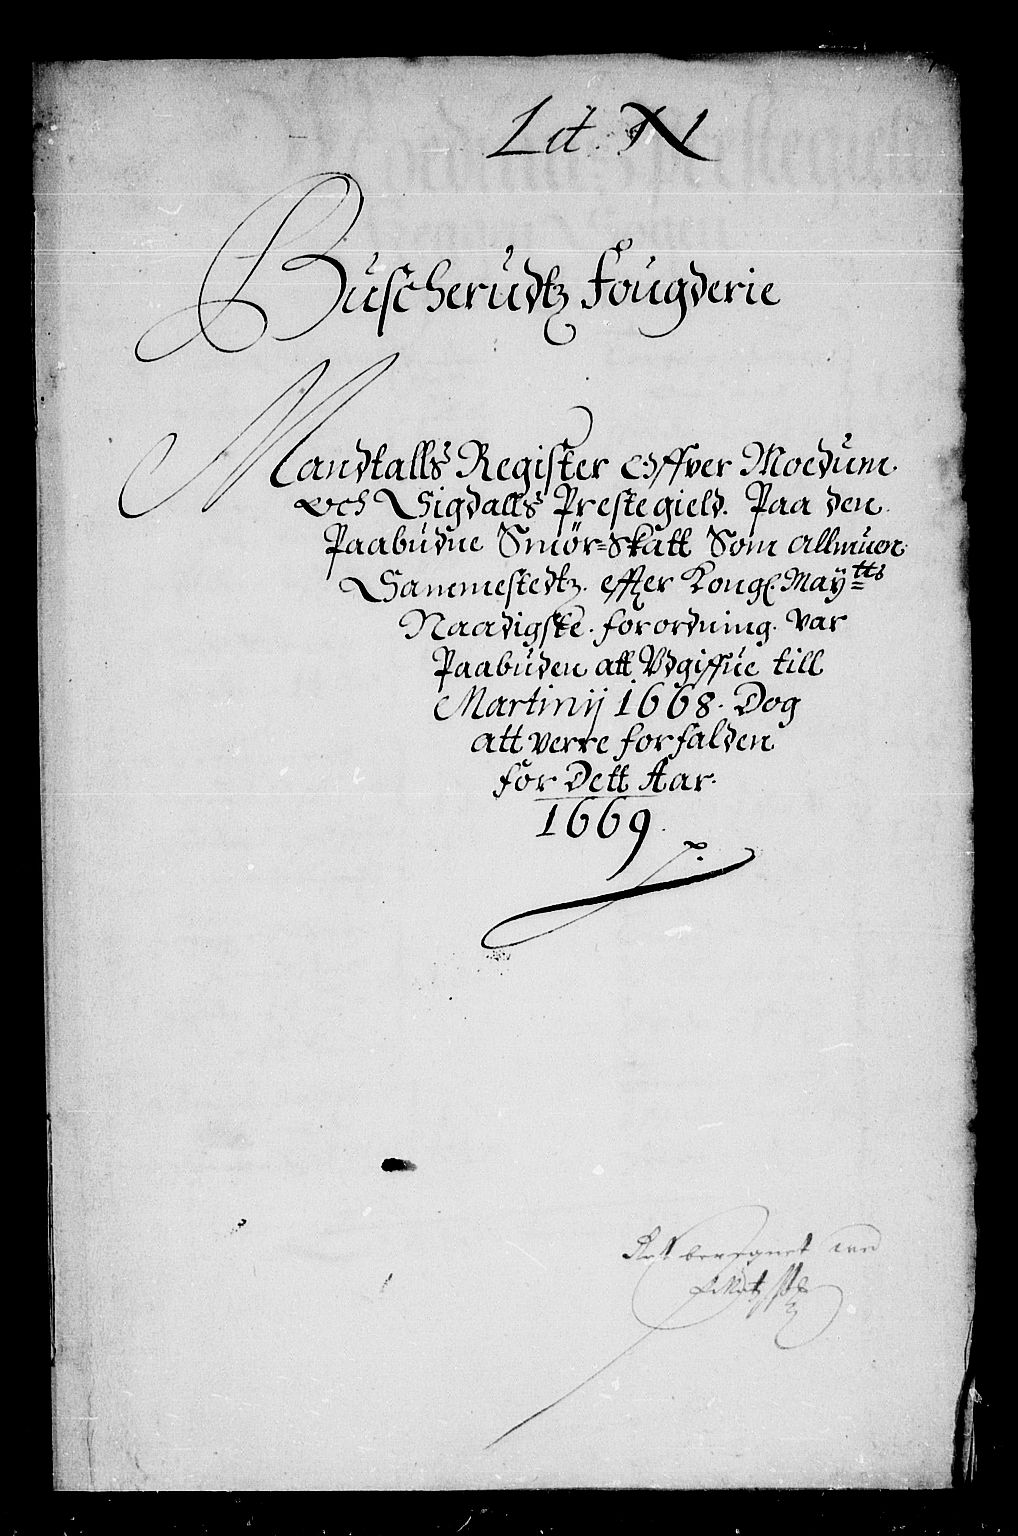 Lit. N
Buscherudtz Fougderie
Mandtalls Register Offver Moedum.
och Sigdalls Prestegield. Paa den
Paabudne Smör=Skatt Som allmuen
Sammestedtz. effter Kongl. Maytts
Naadigste. forordning. var
Paabuden att Udgiffue till
Martinij 1668. Dog
att verre forfalden
for Dett Aar.
1669.
Rett beregnet